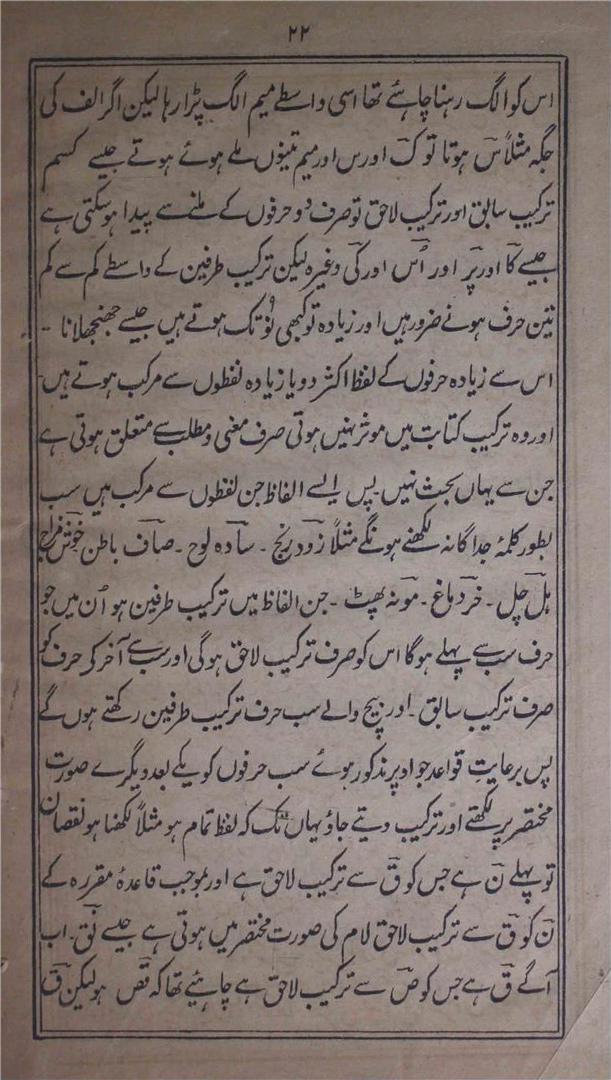 ۲۲
اس کو الگ رہنا چاہئے تھا اسی واسطے میم الگ پڑا رہا لیکن اگر الف کی
جگہ مثلاً س ہوتا تو ک اور س اور میم تینوں ملے ہوئے ہوتے جیسے کسم
ترکیب سابق اور ترکیب لاحق تو صرف دو حرفوں کے ملنے سے پیدا ہو سکتی ہے
جیسے کا اور پر اور اُس اور گی وغیرہ لیکن ترکیب طرفین کے واسطے کم سے کم
تین حرف ہونے ضرور ہیں اور زیادہ تو کبھی نَو تک ہوتے ہیں جیسے جھنجھلانا -
اس سے زیادہ حرفوں کے لفظ اکثر دو یا زیادہ لفظوں سے مرکب ہوتے ہیں-
اور وہ ترکیب کتابت میں موثر نہیں ہوتی صرف معنی و مطلب سے متعلق ہوتی ہے
جن سے یہاں بحث نہیں پس ایسے الفاظ جن لفظوں سے مرکب ہیں سب
بطور کلمۂ جداگانہ لکھنے ہونگے مثلاً زود رنج - سادہ لوح - صاف باطن خوش مزاج
ہل چل - خر دماغ - مونہ پھٹ - جن الفاظ میں ترکیب طرفین ہو اُن میں جو
حرف سب سے پہلے ہوگا اس کو صرف ترکیب لاحق ہوگی اور سب سے آخر کی حرف کو
صرف ترکیب سابق - اور بیچ والے سب حرف ترکیب طرفین رکھتے ہوں گے
پس برعایتِ قواعد جو اوپر مذکور ہوئے سب حرفوں کو یکے بعد دیگرے صورت
مختصر پر لکھتے اور ترکیب دیتے جاؤ یہاں تک کہ لفظ تمام ہو مثلاً لکھنا ہو نقصان
تو پہلے ن ہے جس کو ق سے ترکیب لاحق ہے اور بموجب قاعدۂ مقررہ کے
ن کو ق سے ترکیب لاحق لام کی صورت مختصر میں ہوتی ہے جیسے نق - اب
آگے ق ہے جس کو ص سے ترکیب لاحق ہے چاہئیے تھا کہ قص ہو لیکن ق